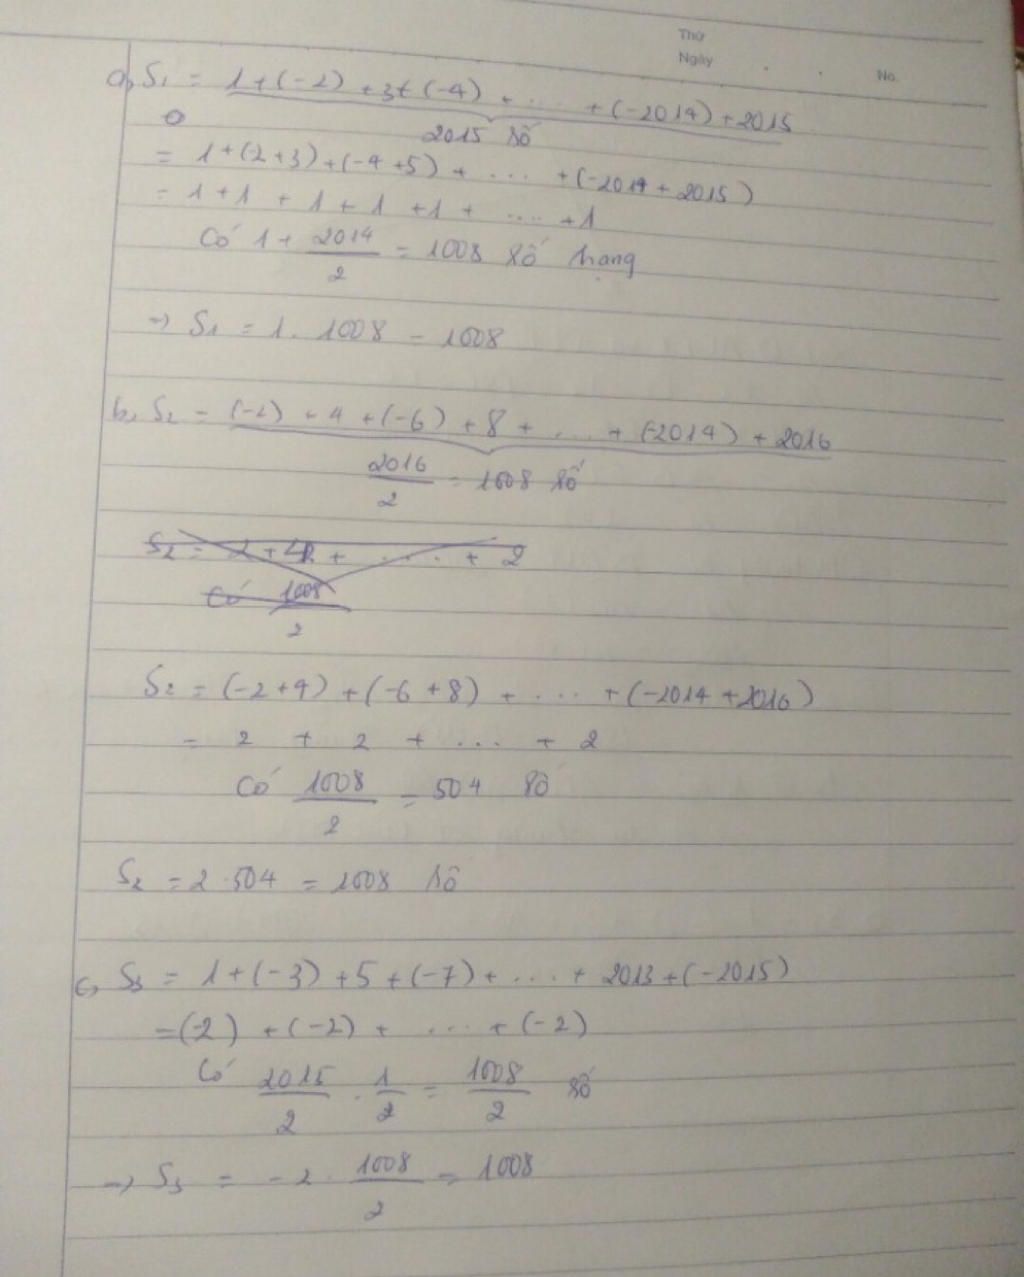 Thứ
Ngày
No.
a, S₁ = 1 + (-2) + 3 + (-4) + .... + (-2014) + 2015
2015 số
= 1 + (-2+3) + (-4+5) + .... + (-2014 + 2015)
= 1 + 1 + 1 + 1 + 1 + .... + 1
Có 1 + 2014/2 = 1008 số hạng
→ S₁ = 1. 1008 = 1008
b, S₂ = (-2) + 4 + (-6) + 8 + .... + (-2014) + 2016
2016/2 = 1008 số
S₂ = (-2+4) + (-6+8) + .... + (-2014 + 2016)
= 2 + 2 + .... + 2
Có 1008/2 = 504 số
S₂ = 2 . 504 = 1008 số
c, S₃ = 1 + (-3) + 5 + (-7) + .... + 2013 + (-2015)
= (-2) + (-2) + .... + (-2)
Có 2015/2 . 1/2 = 1008/2 số
→ S₃ = -2 . 1008/2 = 1008